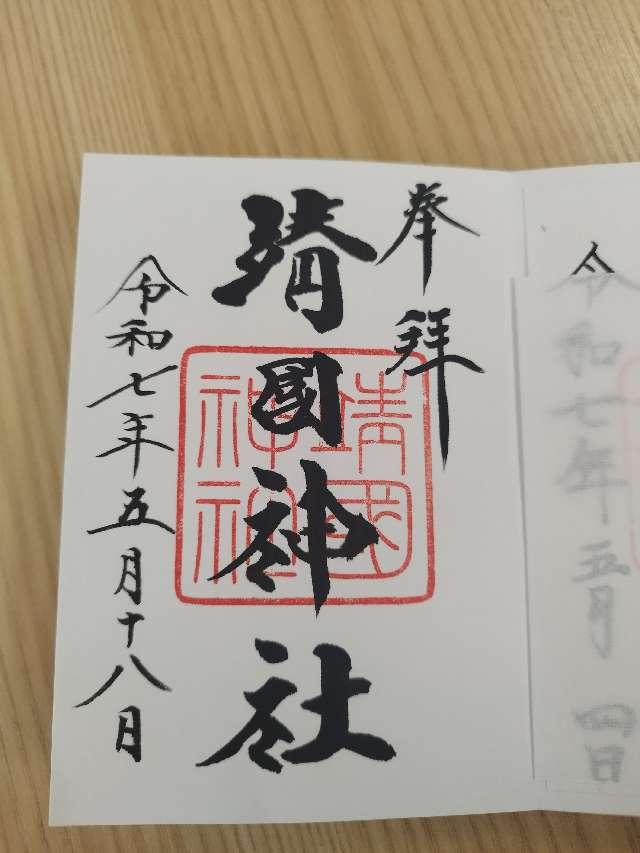 令和七年五月 四日
奉拝
靖國神社
靖國神社
令和七年五月十八日